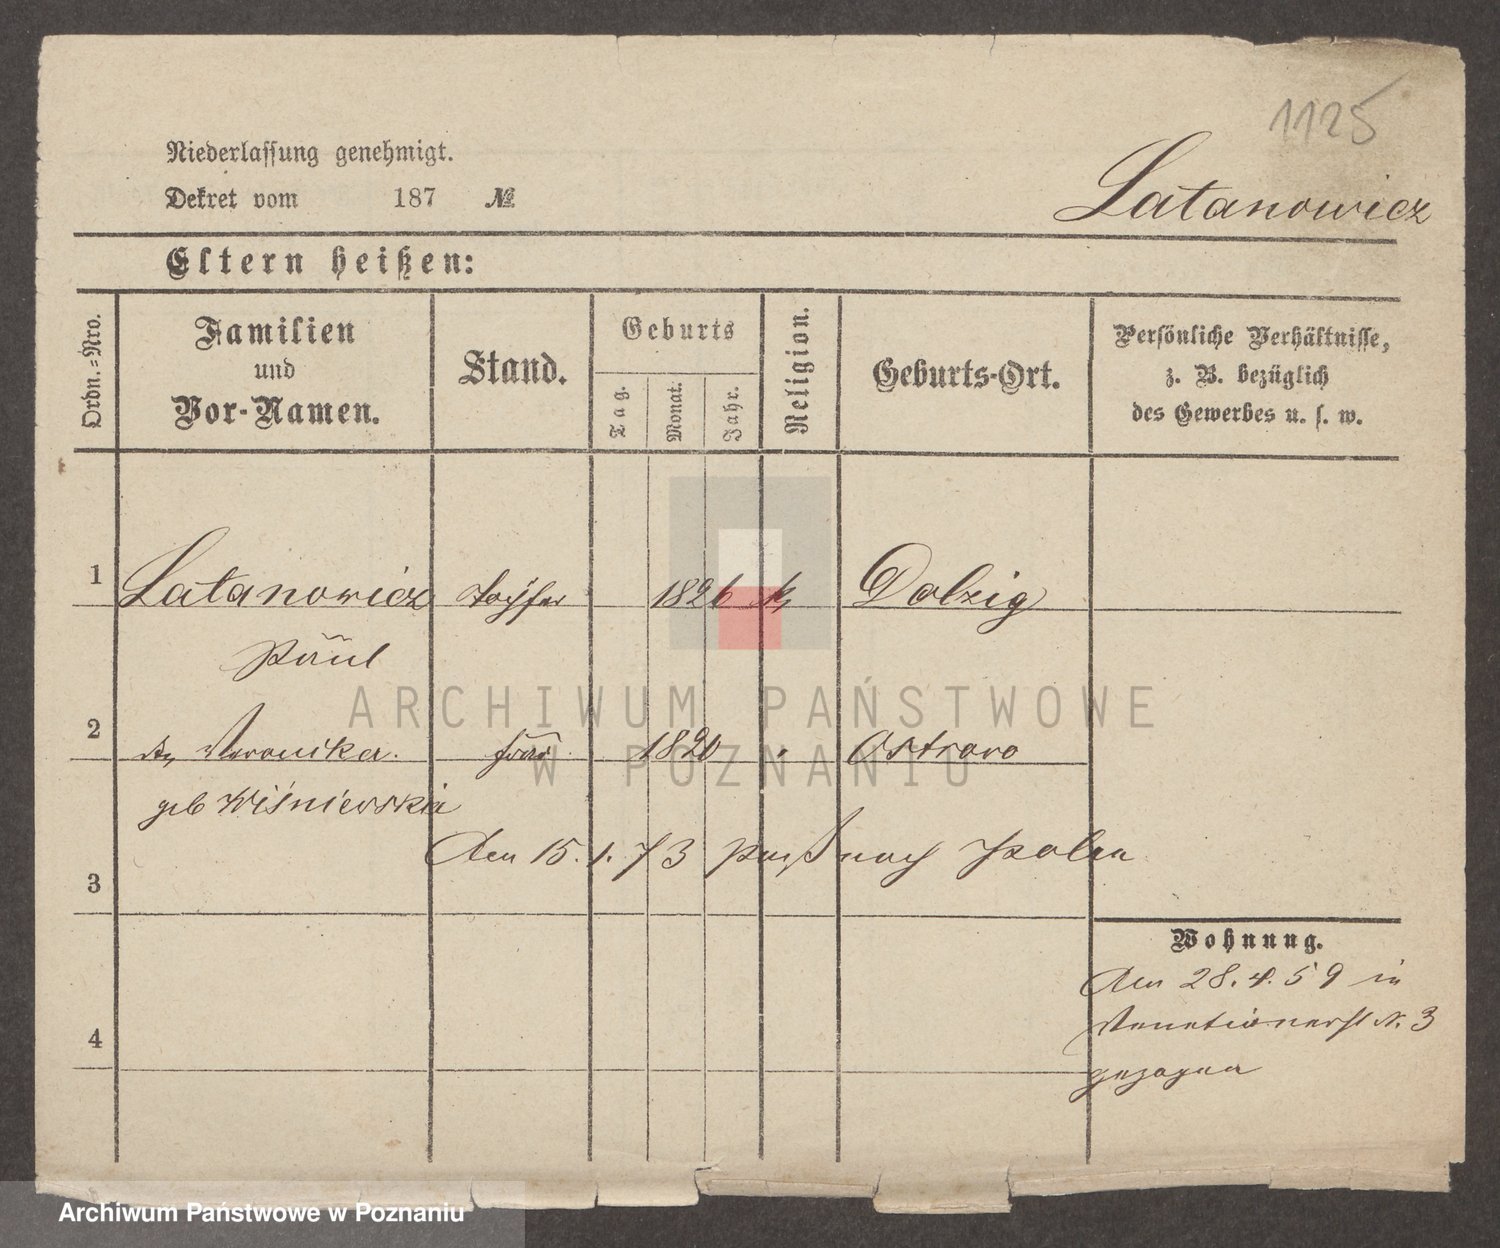 1125
Niederlassung genehmigt.
Dekret vom 187 №
Latanowicz
Eltern heißen:
Ordn.-Nro.
Familien
und
Vor-Namen.
Stand.
Geburts
Tag.
Monat.
Jahr.
Religion.
Geburts-Ort.
Persönliche Verhältnisse,
z. B. bezüglich
des Gewerbes u. s. w.
1 Latanowicz Töpfer 1826 k, Dolzig
Paul
ARCHIWUM PAŃSTWOWE
W POZNANIU
2 Veronika. Frau 1820 Ostrovo
geb Wiśniewska
Den 15. 1. 73 Paß nach Polen
3
Wohnung.
Den 28. 4. 59 in
Venetianerst N. 3
gezogen
4
Archiwum Państwowe w Poznaniu